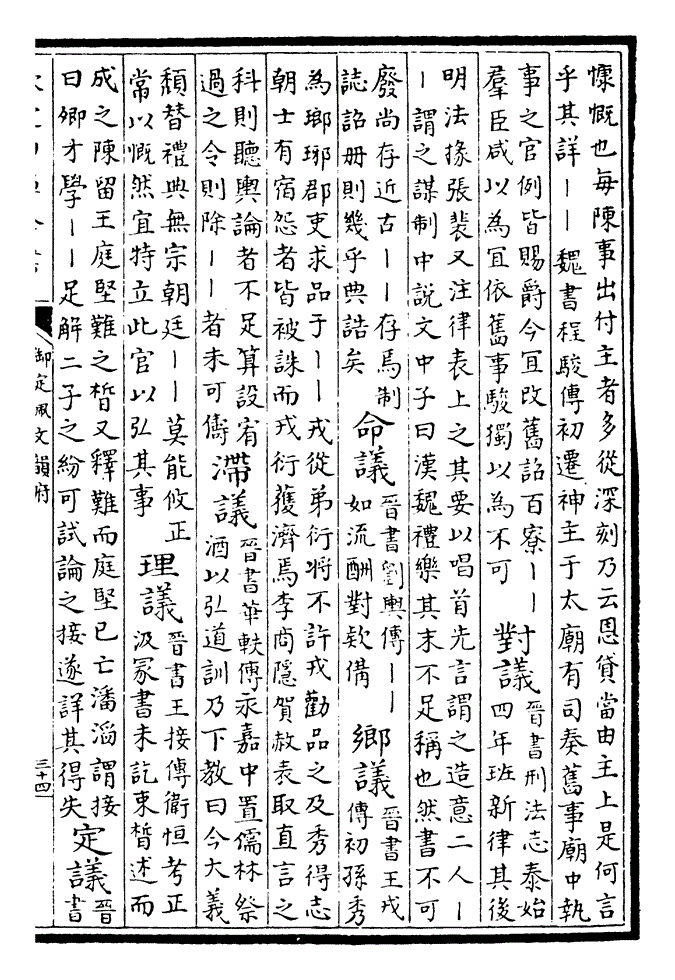 慷慨也每陳事出付主者多從深刻乃云恩貸當由主上是何言
乎其詳丨丨魏書程駿傳初遷神主于太廟有司奏舊事廟中執
事之官例皆賜爵今宜改舊詔百寮丨丨
羣臣咸以為宜依舊事駿獨以為不可
對議
晉書刑法志泰始
四年班新律其後
明法掾張裴又注律表上之其要以唱首先言謂之造意二人丨
丨謂之謀制中説文中子曰漢魏禮樂其末不足稱也然書不可
廢尚存近古丨丨存焉制
誌詔册則幾乎典誥矣
命議
晉書劉輿傳丨丨
如流酬對欵備
鄉議
晉書王戎
傳初孫秀
為瑯琊郡吏求品于丨丨戎從弟衍將不許戎勸品之及秀得志
朝士有宿怨者皆被誅而戎衍獲濟焉李商隱賀赦表取直言之
科則聽輿論者不足算設宥
過之令則除丨丨者未可儔
滯議
晉書華軼傳永嘉中置儒林祭
酒以弘道訓乃下教曰今大義
頽替禮典無宗朝廷丨丨莫能攸正
常以慨然宜特立此官以弘其事
理議
晉書王接傳衛恒考正
汲冢書未訖束晳述而
成之陳留王庭堅難之晳又釋難而庭堅已亡潘滔謂接
曰卿才學丨丨足解二子之紛可試論之接遂詳其得失
定議
晉
書
御定佩文韻府
三十四